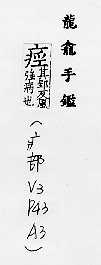 龍龕手鑑
痙 其郢反風
強病也
(疒部
V3
P43
A3)